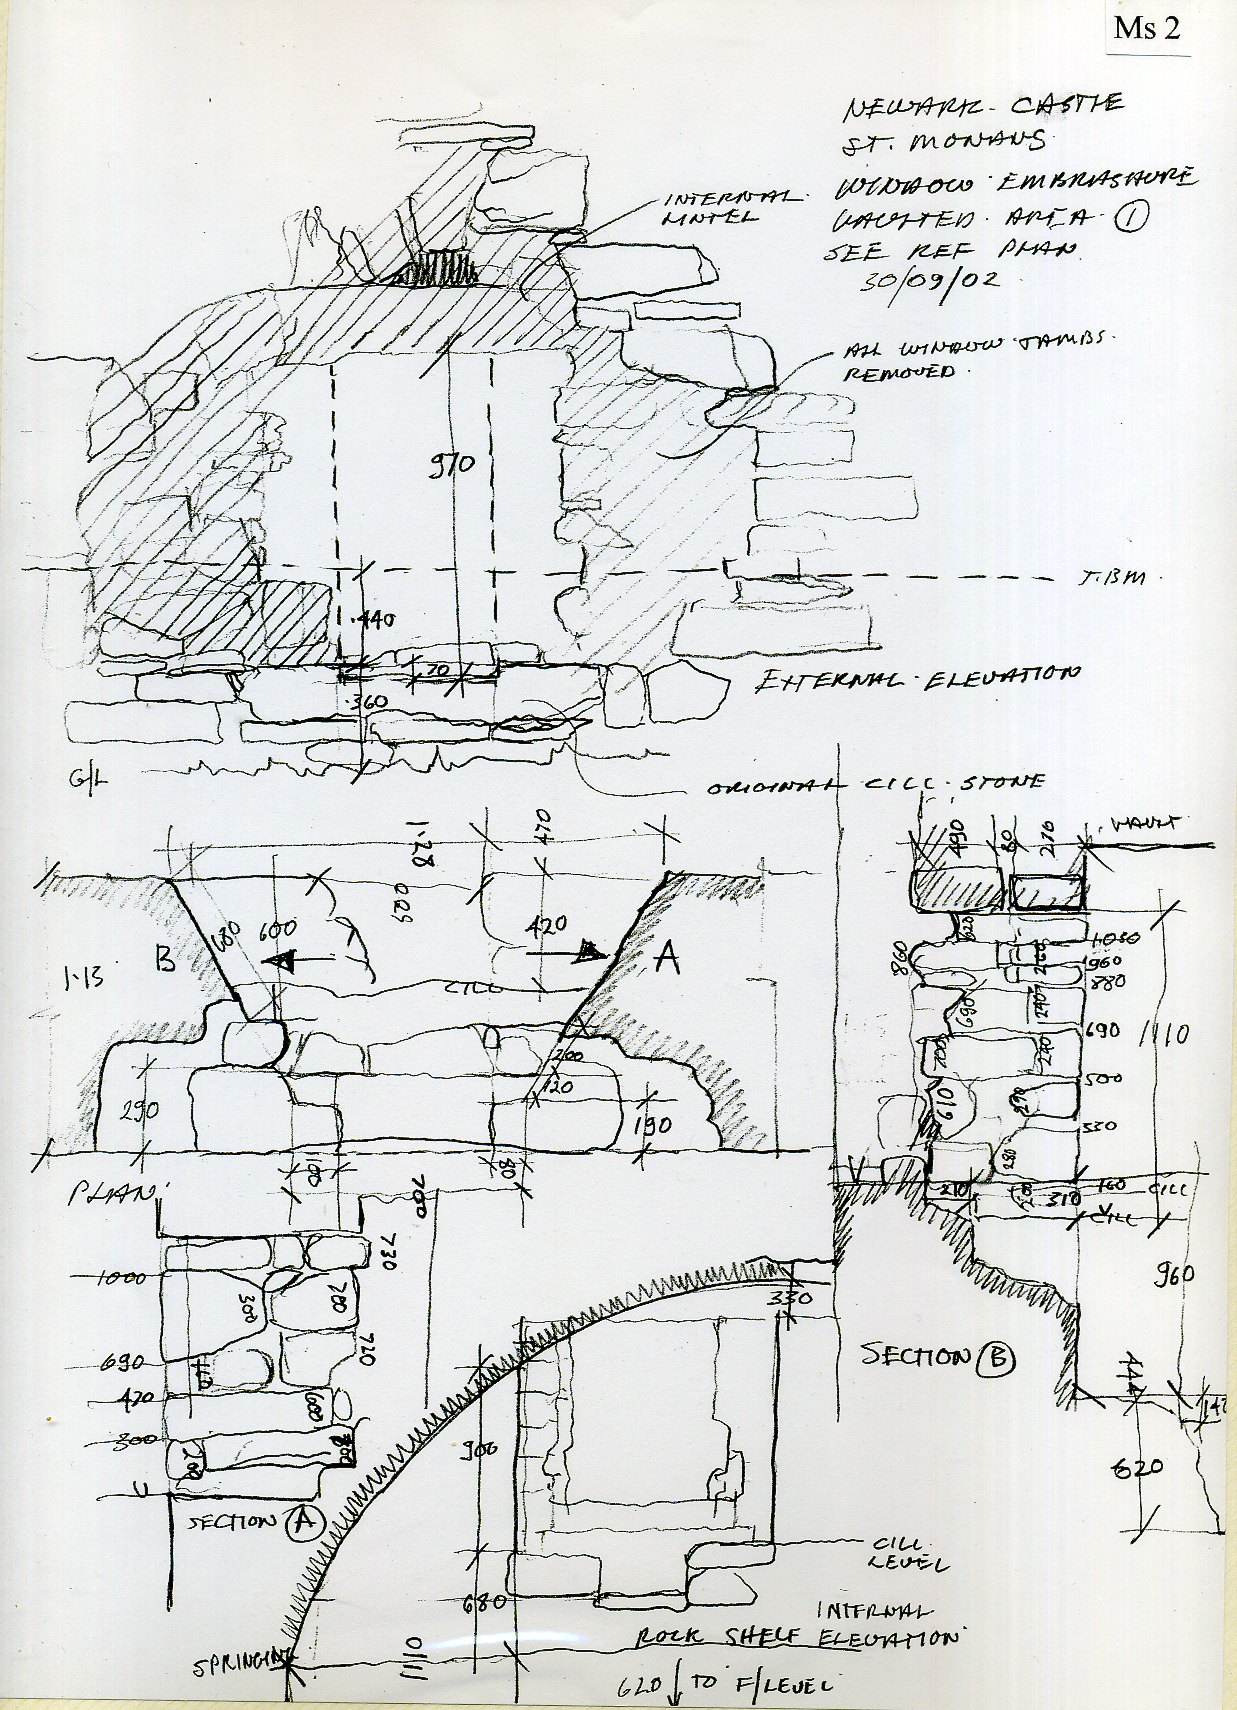 Ms 2
NEWARK. CASTLE
ST. MONANS
WINDOW. EMBRASAURE
VAULTED. AREA. 1
SEE REF PLAN
30/09/02
INTERNAL.
LINTEL
ALL WINDOW JAMBS.
REMOVED.
970
T.B.M.
.440
70
.360
EXTERNAL. ELEVATION
G/L
ORIGINAL CILL. STONE
1.28
470
600
680
600
420
B
A
1.13
CILL
200
120
290
190
100
80
700
PLAN.
490
80
270
VAULT
620
860
1.030
960
880
690
240
690
1110
200
240
500
610
290
330
280
210
310
160
CILL
CILL
960
SECTION B
444
142
620
730
1000
300
700
690
720
470
600
300
200
SECTION A
330
900
680
CILL
LEVEL
INTERNAL
ROCK SHELF ELEVATION.
SPRINGING
1110
620 ↓ TO F/LEVEL